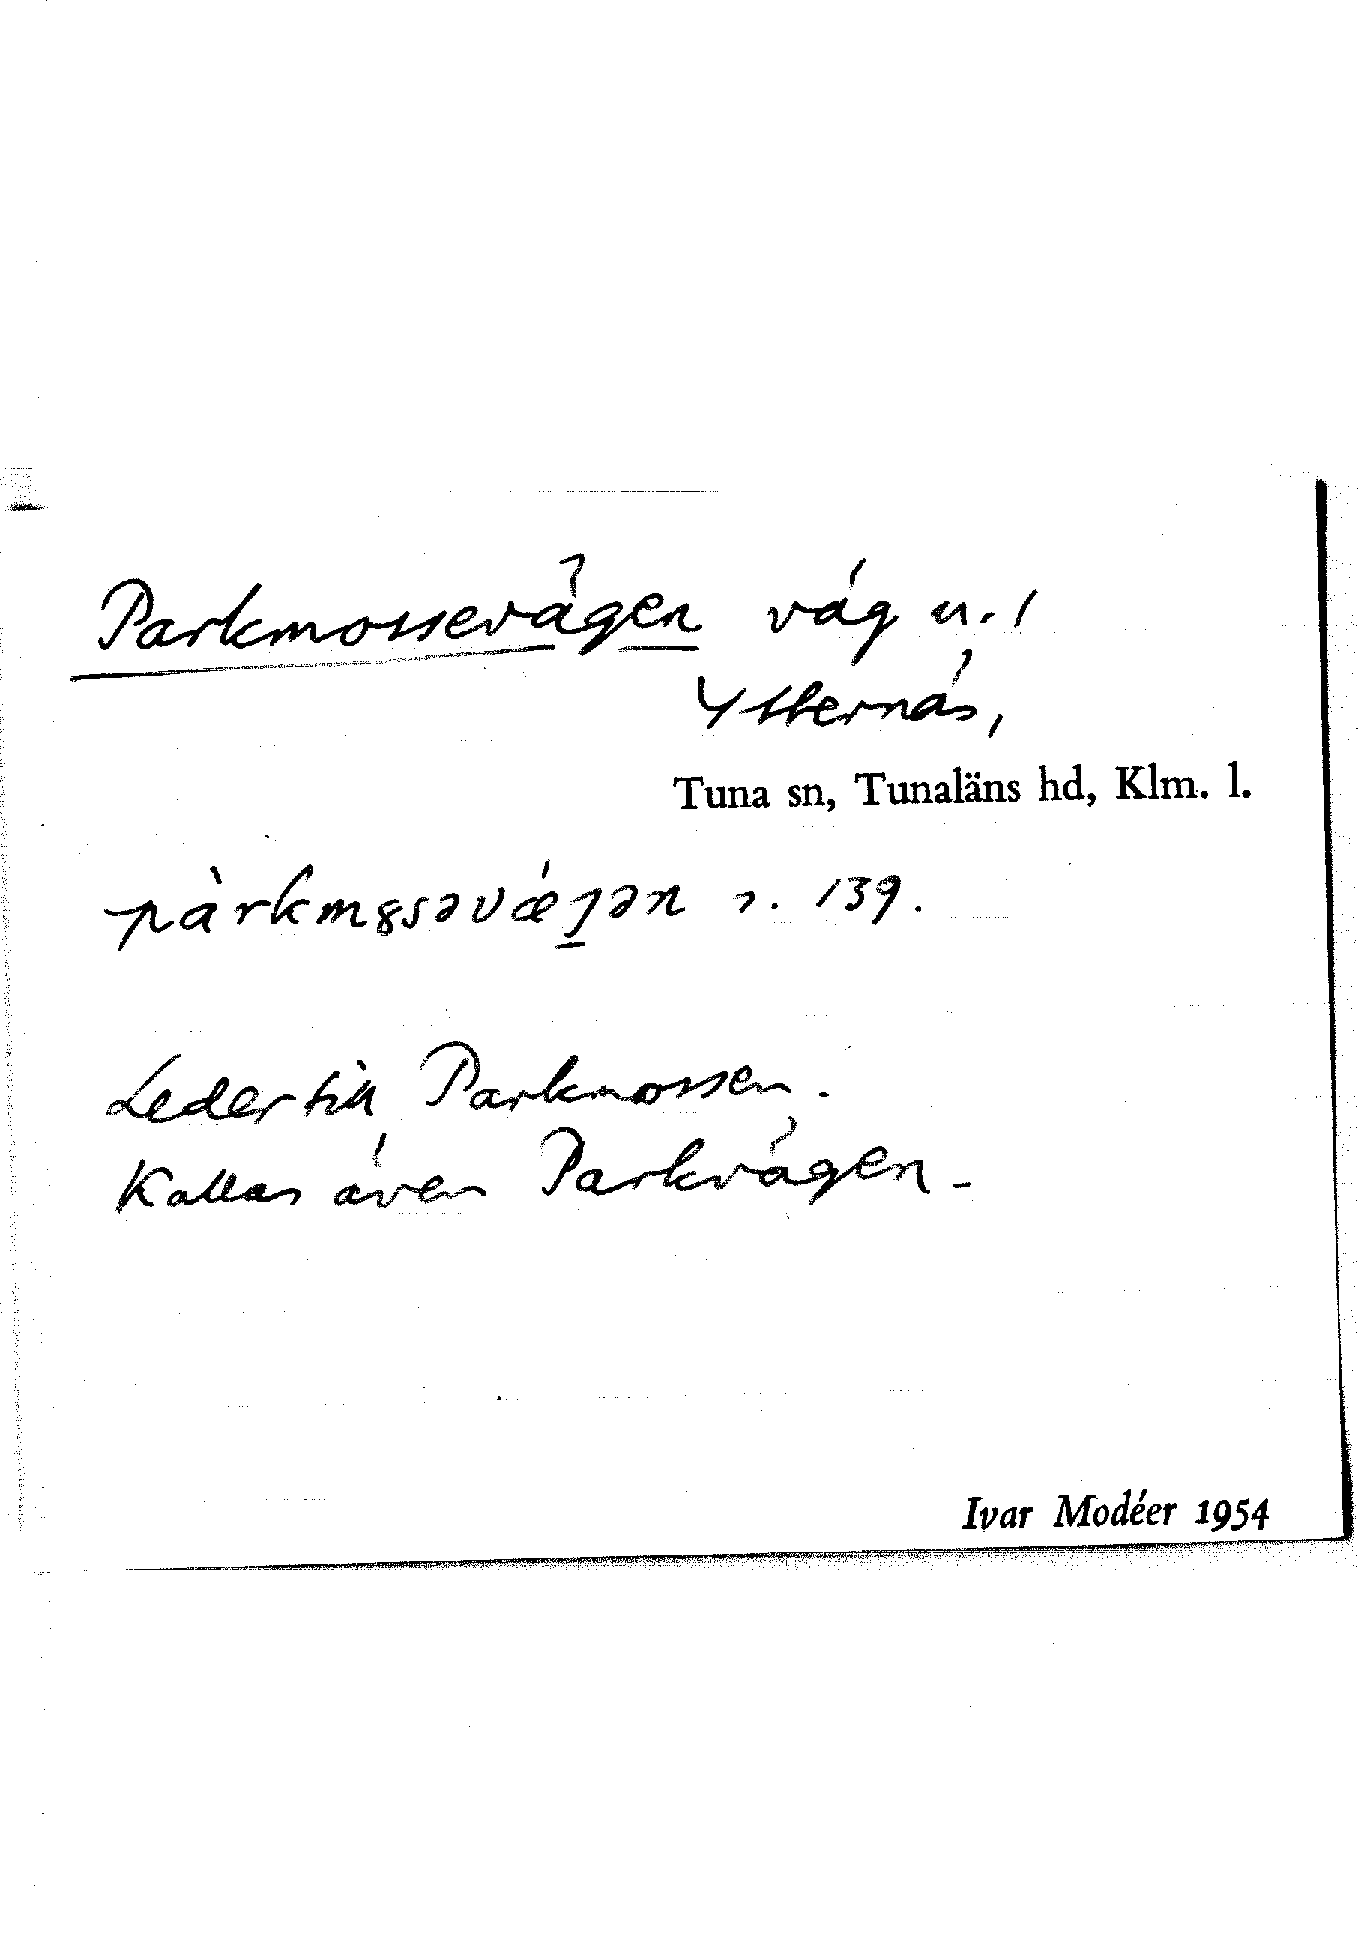 Parkmossevägen väg u. /
Ytternäs,
Tuna sn, Tunaläns hd, Klm. l.
pàrkmȣsəvǽȷ̱ən s. 139.
Leder till Parkmossen.
Kallas även Parkvägen.
Ivar Modéer 1954